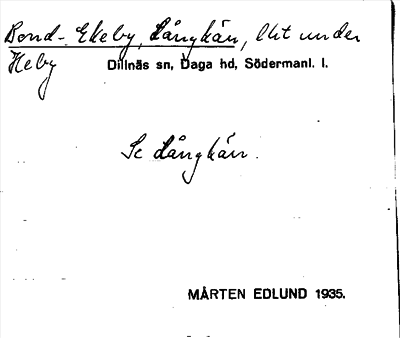 Bond-Ekeby, Långkärr, lht under
Heby
Dillnäs sn, Daga hd, Södermanl. l.
Se Långkärr.
MÅRTEN EDLUND 1935.